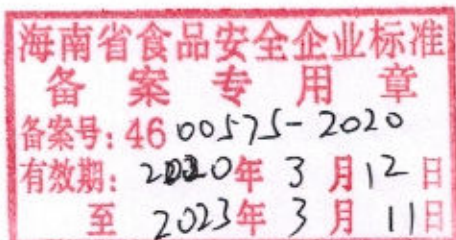 海南省食品安全企业标准
备案专用章
备案号: 46 00575-2020
有效期: 2020年 3 月 12 日
至 2023年 3 月 11日